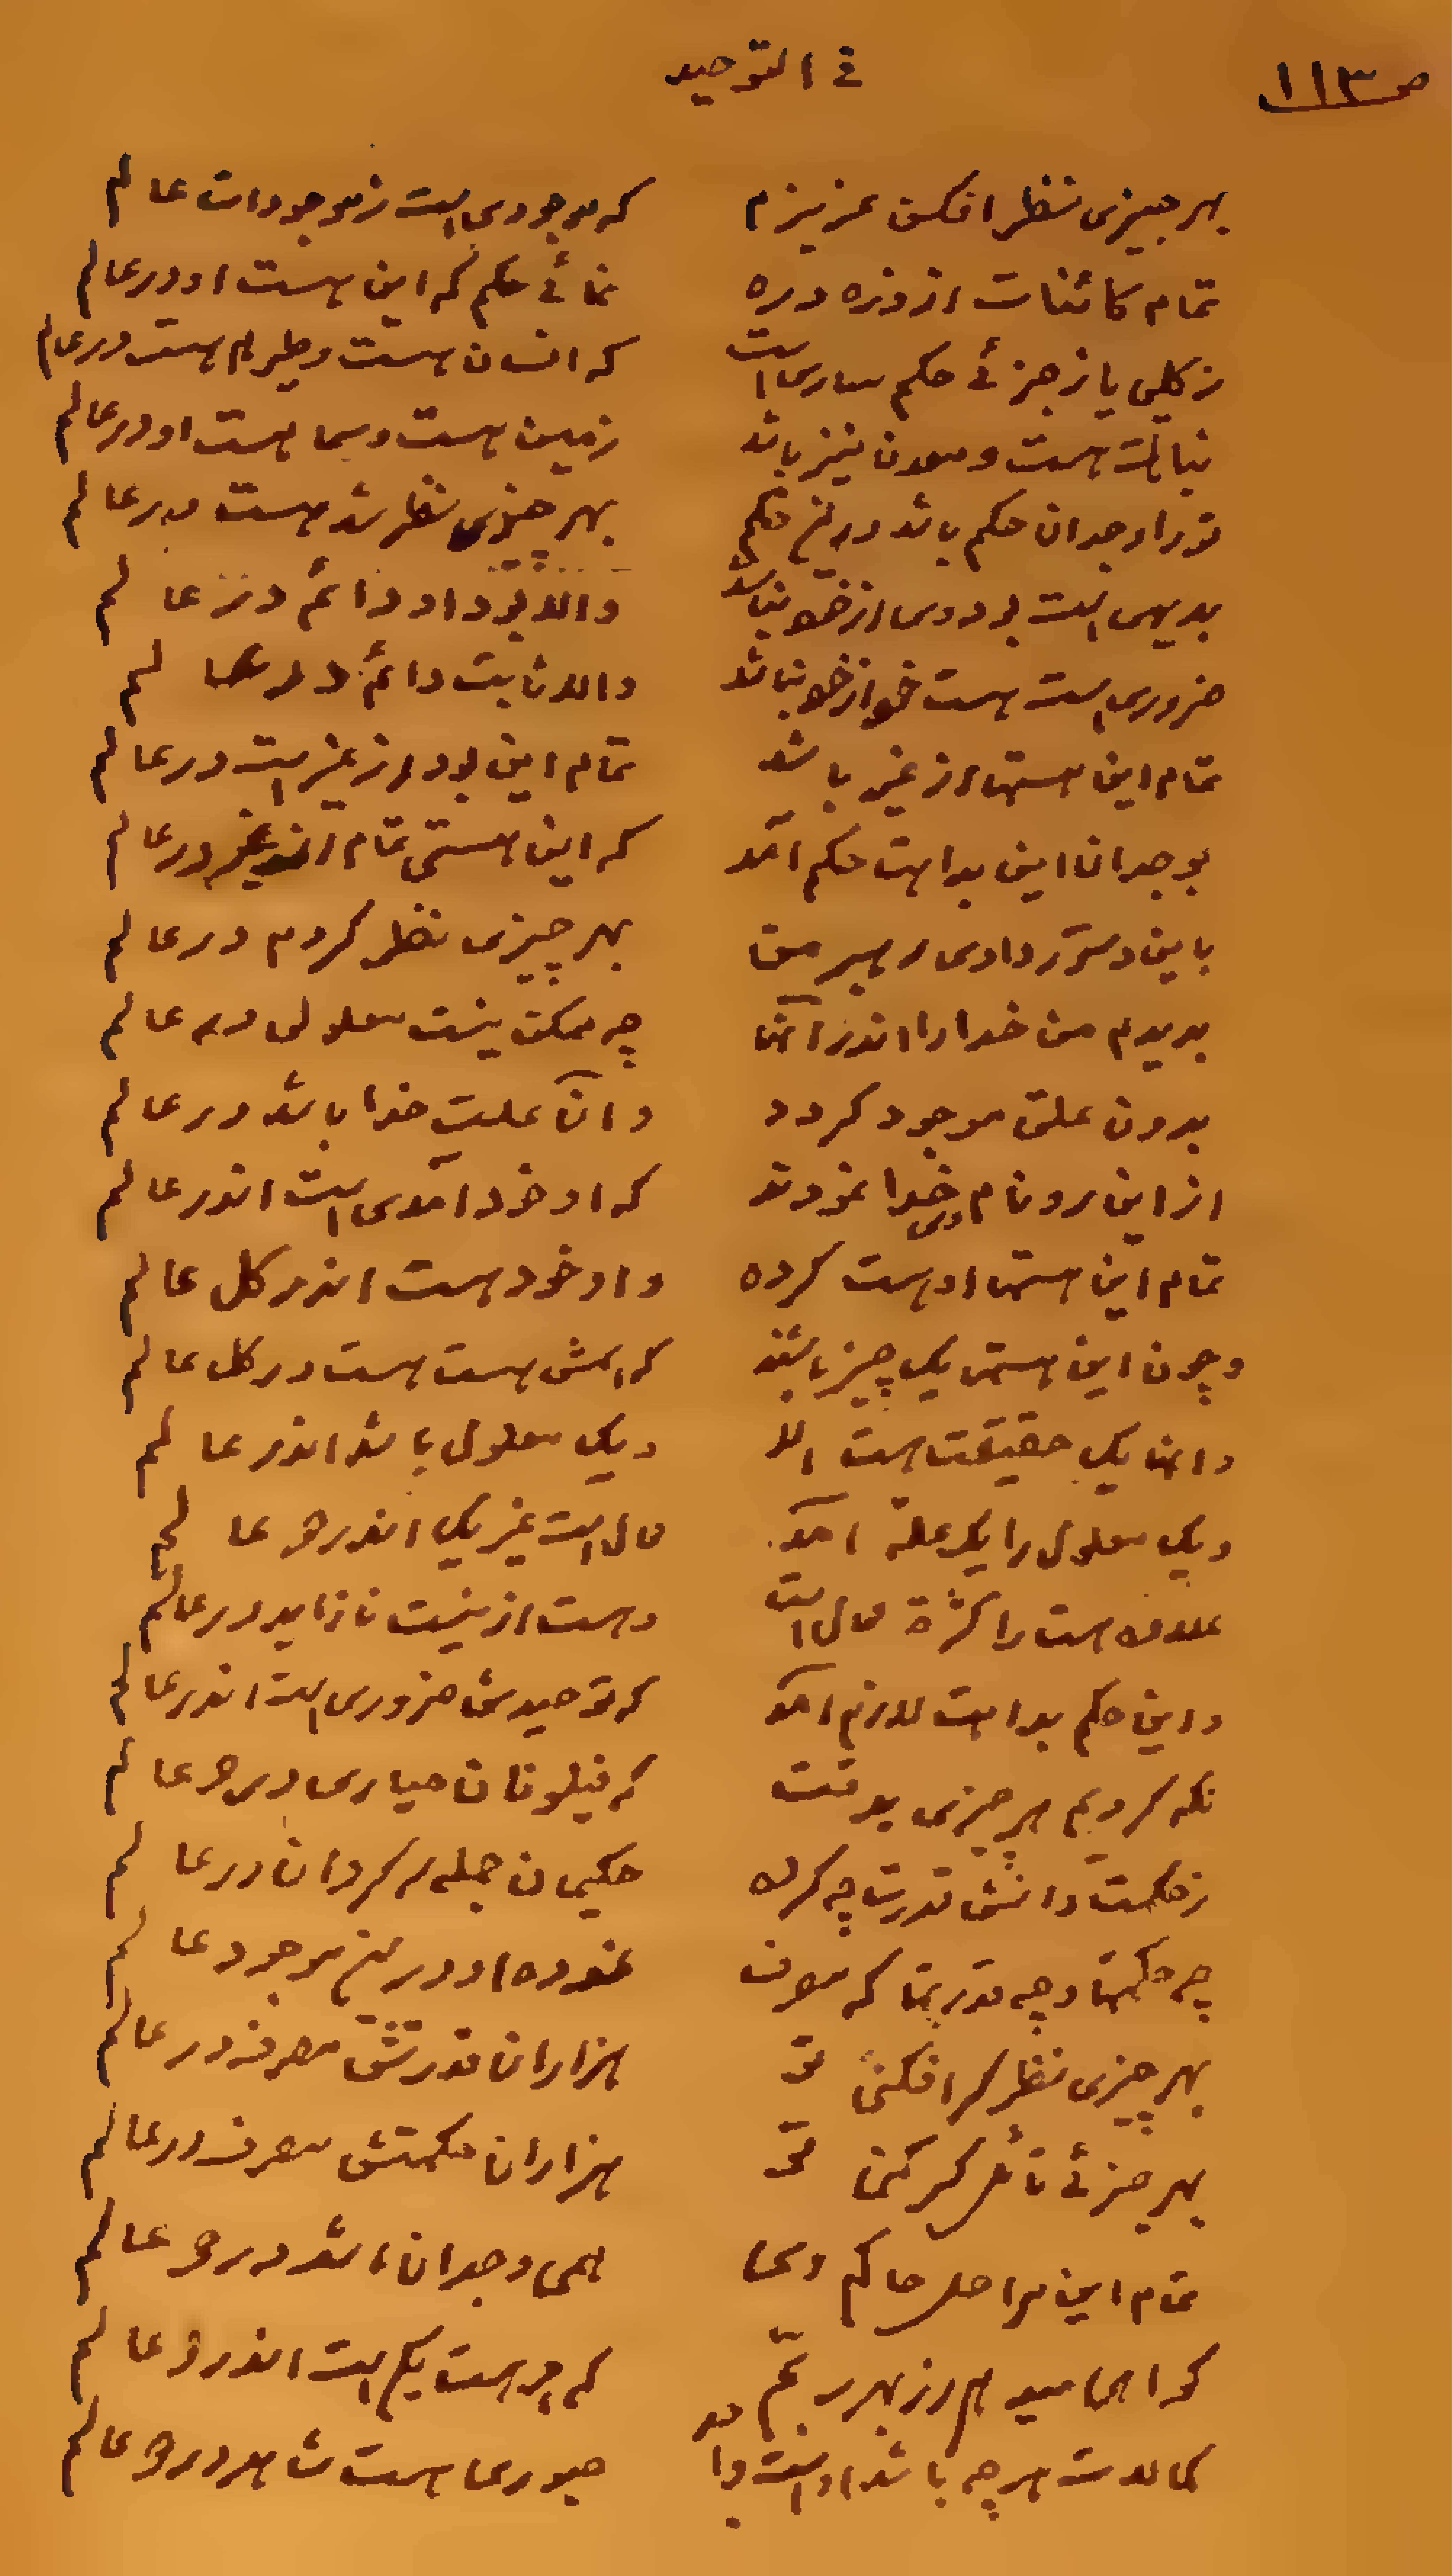 ص ۱۱۳
فی التوحید
بهر چیزی نظر افکن عزیزم که موجودی است ز موجودات عالم
تمام کائنات از ذره دره نمائی حکم که این هست او در عالم
ز کلی یا ز جزئی حکم ساری است که انسان هست و طیر هم هست در عالم
نباتات هست و معدن نیز باشد زمین هست و سما هست او در عالم
تو را وجدان حکم باشد در این حکم بهر چیزی نظر شد هست در عالم
بدیهی است بودوی از خود نباشد والا بود او دائم در عالم
ضروری است هست خود از خود نباشد والا ثابت دائم در عالم
تمام این هستها از غیر باشد تمام این بود از غیر است در عالم
بوجدان این بداهت حکم آمد که این هستی تمام از غیر در عالم
باین دستور دادی رهبر من بهر چیزی نظر کردم در عالم
بدیدم من خدا را اندر آنها چه ممکن نیست معلولی در عالم
بدون علتی موجود گردد و آن علت خدا باشد در عالم
از این رو نام وی خدا نمودند که او خود آمدی است اندر عالم
تمام این هستی او هست کرده و او خود هست اندر کل عالم
و چون این هستی یک چیز باشند که اسمش هست هست در کل عالم
و انها یک حقیقت هست الا و یک معلول باشد اندر عالم
و یک معلول را یک علة آمد محال است غیر یک اندر دو عالم
علاوه هست را کثرة محال است و هست از نیست نا زاید در عالم
و این حکم بداهت لازم آمد که توحیدش ضروری است اندر عالم
نگه کردیم هر چیزی بدقت که فیلوفان حیاری در دو عالم
ز حکمت دانش قدرت چه کرده حکیمان جمله سرگردان در عالم
چه حکمتها و چه قدرتها که مصرف نموده او در این موجود عالم
بهر چیزی نظر گر افکنی تو هزاران قدرتش مصرف در عالم
بهر جزئی تأمل گر کنی تو هزاران حکمتش مصرف در عالم
تمام این مراحل حاکم وی همی وجدان باشد در دو عالم
که هر چه هست یکی است اندر دو عالم
کمالات هر چه باشد او است حیوری هست شاهد در دو عالم